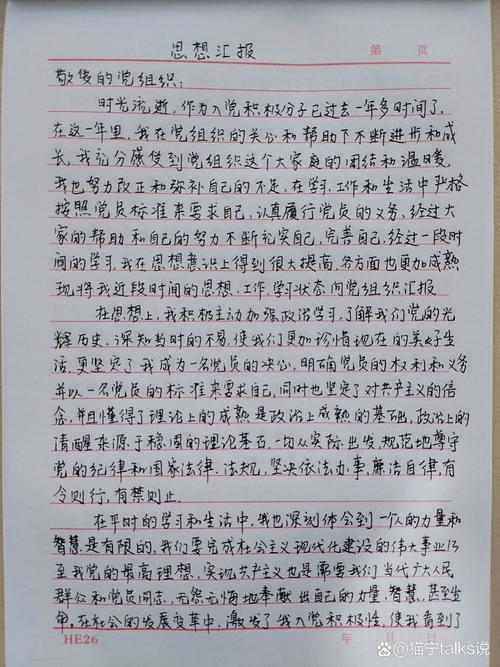 思想汇报
第 页
敬爱的党组织:
时光流逝,作为入党积极分子已过去一年多时间了,
在这一年里,我在党组织的关心和帮助下不断进步和成
长,我充分感受到党组织这个大家庭的团结和温暖
我也努力改正和弥补自己的不足,在学习、工作和生活中严格
按照党员标准来要求自己,认真履行党员的义务,经过大
家的帮助和自己的努力不断充实自己,完善自己,经过一段时
间的学习,我在思想意识上得到很大提高,各方面也更加成熟
现将我近段时间的思想、工作、学习状态向党组织汇报
在思想上,我积极主动加强政治学习,了解我们党的光
辉历史,深知当时的不易,使我们更加珍惜现在的美好生
活,更坚定了我成为一名党员的决心,明确党员的权利和义务
并以一名党员的标准来要求自己,同时也坚定了对共产主义的信
念,并且懂得了理论上的成熟是政治上成熟的基础,政治上的
清醒来源于稳固的理论基石,一切从实际出发,规范地遵守
党的纪律和国家法律、法规,坚决依法办事,廉洁自律,有
令则行,有禁则止.
在平时的学习和生活中,我也深刻体会到一个人的力量和
智慧是有限的,我们要完成社会主义现代化建设的伟大事业乃
至我党的最高理想,实现共产主义也是需要我们当代广大人民
群众和党员同志,无怨无悔地奉献出自己的力量、智慧,甚至生
命,在社会的发展变革中,激发了我入党积极性,使我看到了
HE26
年 月 日
@猫宁talks说